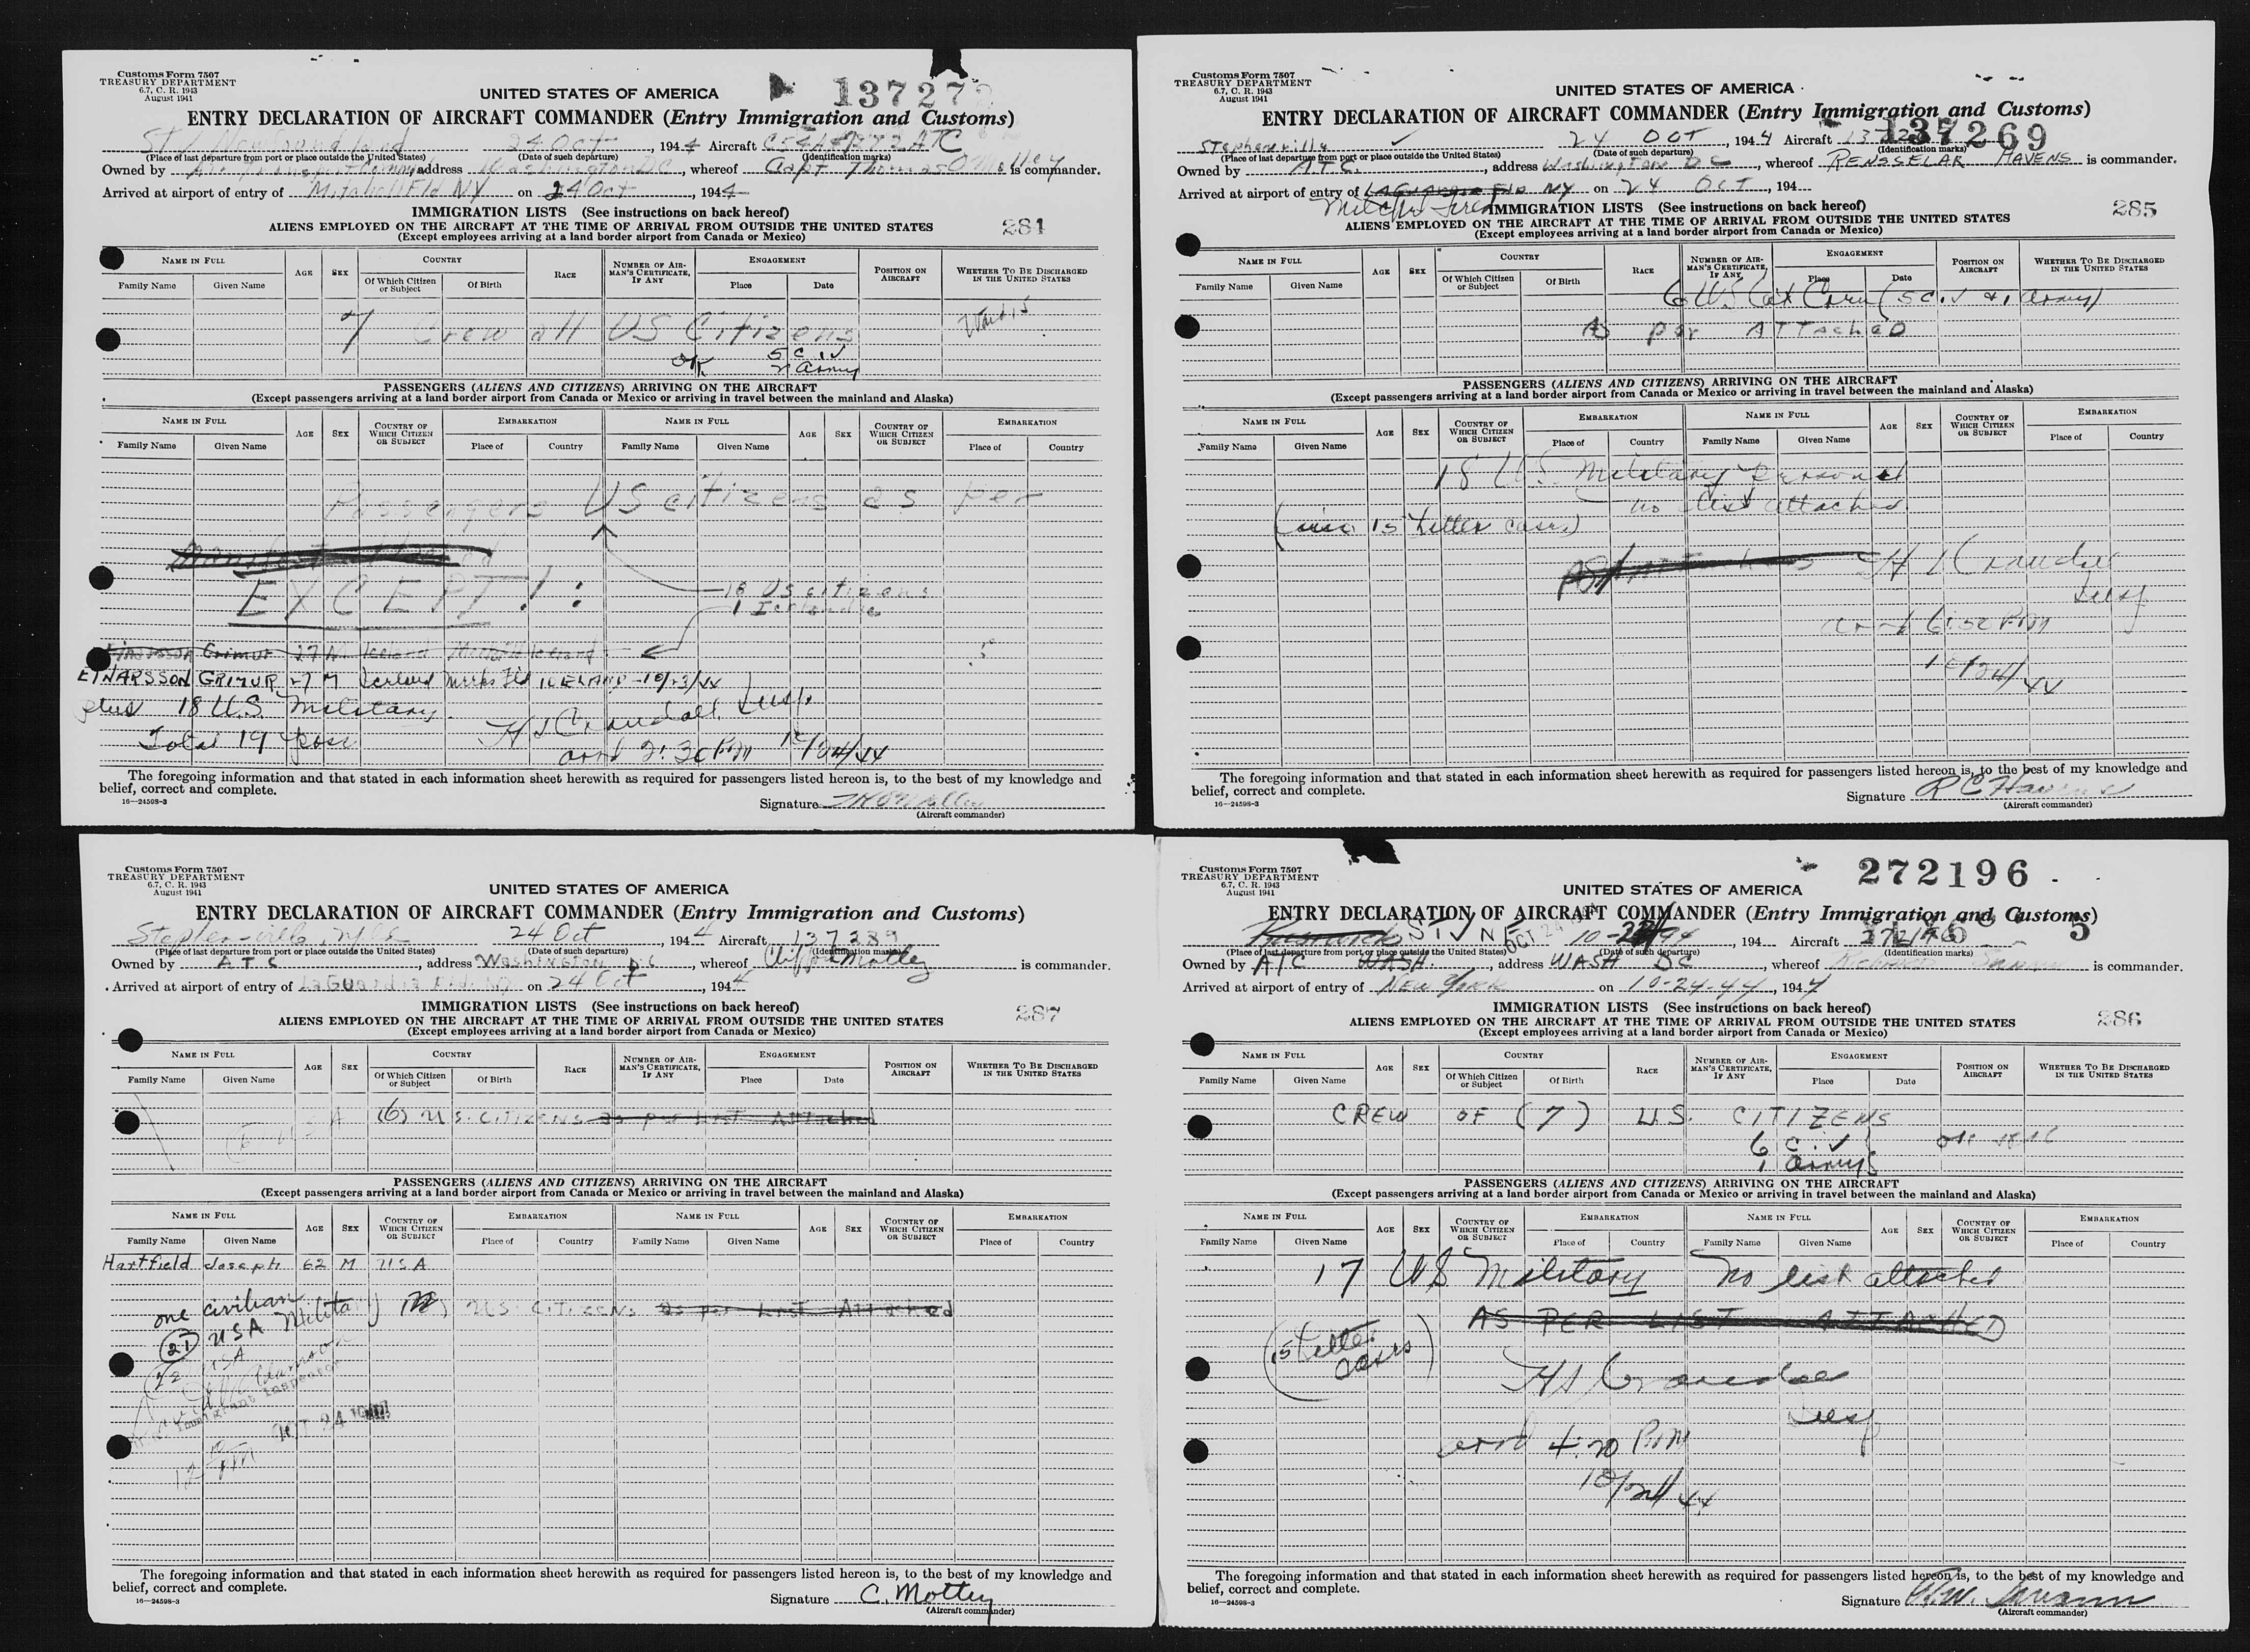 Customs Form 7507
TREASURY DEPARTMENT
6.7, C. R. 1943
August 1941
137272
UNITED STATES OF AMERICA
ENTRY DECLARATION OF AIRCRAFT COMMANDER (Entry Immigration and Customs)
STV Newfoundland 24 Oct , 1944 Aircraft C54A ATC
(Place of last departure from port or place outside the United States) (Date of such departure) (Identification marks)
Owned by Air Transport Command address Washington DC, whereof Capt Thomas O Malley is commander.
Arrived at airport of entry of Mitchell Fld NY on 24 Oct , 1944
IMMIGRATION LISTS (See instructions on back hereof)
284
ALIENS EMPLOYED ON THE AIRCRAFT AT THE TIME OF ARRIVAL FROM OUTSIDE THE UNITED STATES
(Except employees arriving at a land border airport from Canada or Mexico)
NAME IN FULL AGE SEX COUNTRY RACE NUMBER OF AIRMAN'S CERTIFICATE, IF ANY ENGAGEMENT POSITION ON AIRCRAFT WHETHER TO BE DISCHARGED IN THE UNITED STATES
Family Name Given Name Of Which Citizen or Subject Of Birth Place Date
7 Crew all US Citizens
5 Civ
OK 2 Army
PASSENGERS (ALIENS AND CITIZENS) ARRIVING ON THE AIRCRAFT
(Except passengers arriving at a land border airport from Canada or Mexico or arriving in travel between the mainland and Alaska)
NAME IN FULL AGE SEX COUNTRY OF WHICH CITIZEN OR SUBJECT EMBARKATION NAME IN FULL AGE SEX COUNTRY OF WHICH CITIZEN OR SUBJECT EMBARKATION
Family Name Given Name Place of Country Family Name Given Name Place of Country
Passengers US citizens as per
manifest attached
EXCEPT! :
18 US citizens
1 Icelandic
Einarsson Grimur 27 M Iceland Meeks Fld Iceland
EINARSSON GRIMUR 27 M Iceland Meeks Fld ICELAND - 10/23/44
plus 18 U.S. Military
Total 19 pass
H S Crandall Insp.
arrd 2:30 PM 10/24/44
The foregoing information and that stated in each information sheet herewith as required for passengers listed hereon is, to the best of my knowledge and
belief, correct and complete.
16—24598-3
Signature T H O'Malley
(Aircraft commander)
Customs Form 7507
TREASURY DEPARTMENT
6.7, C. R. 1943
August 1941
UNITED STATES OF AMERICA
ENTRY DECLARATION OF AIRCRAFT COMMANDER (Entry Immigration and Customs)
137269
Stephenville 24 OCT , 1944 Aircraft
(Place of last departure from port or place outside the United States) (Date of such departure) (Identification marks)
Owned by A.T.C. , address Washington DC , whereof RENSSELAR HAVENS is commander.
Arrived at airport of entry of LaGuardia Fld NY on 24 OCT , 194
Mitchel Field
IMMIGRATION LISTS (See instructions on back hereof)
285
ALIENS EMPLOYED ON THE AIRCRAFT AT THE TIME OF ARRIVAL FROM OUTSIDE THE UNITED STATES
(Except employees arriving at a land border airport from Canada or Mexico)
NAME IN FULL AGE SEX COUNTRY RACE NUMBER OF AIRMAN'S CERTIFICATE, IF ANY ENGAGEMENT POSITION ON AIRCRAFT WHETHER TO BE DISCHARGED IN THE UNITED STATES
Family Name Given Name Of Which Citizen or Subject Of Birth Place Date
6 US Cit Crew (5 Civ & 1 Army)
As per ATTacheD
PASSENGERS (ALIENS AND CITIZENS) ARRIVING ON THE AIRCRAFT
(Except passengers arriving at a land border airport from Canada or Mexico or arriving in travel between the mainland and Alaska)
NAME IN FULL AGE SEX COUNTRY OF WHICH CITIZEN OR SUBJECT EMBARKATION NAME IN FULL AGE SEX COUNTRY OF WHICH CITIZEN OR SUBJECT EMBARKATION
Family Name Given Name Place of Country Family Name Given Name Place of Country
18 U.S. Military Personnel
no list attached
15 Litter cases)
H S Crandall
Insp
arrd 6:50 PM
10/24/44
The foregoing information and that stated in each information sheet herewith as required for passengers listed hereon is, to the best of my knowledge and
belief, correct and complete.
16—24598-3
Signature R C Havens
(Aircraft commander)
Customs Form 7507
TREASURY DEPARTMENT
6.7, C. R. 1943
August 1941
UNITED STATES OF AMERICA
ENTRY DECLARATION OF AIRCRAFT COMMANDER (Entry Immigration and Customs)
Stephenville, Nfld 24 Oct , 1944 Aircraft 137289
(Place of last departure from port or place outside the United States) (Date of such departure) (Identification marks)
Owned by A T C , address Washington DC , whereof Clifford Mottey is commander.
Arrived at airport of entry of LaGuardia Fld. NY on 24 Oct , 1944
IMMIGRATION LISTS (See instructions on back hereof)
287
ALIENS EMPLOYED ON THE AIRCRAFT AT THE TIME OF ARRIVAL FROM OUTSIDE THE UNITED STATES
(Except employees arriving at a land border airport from Canada or Mexico)
NAME IN FULL AGE SEX COUNTRY RACE NUMBER OF AIRMAN'S CERTIFICATE, IF ANY ENGAGEMENT POSITION ON AIRCRAFT WHETHER TO BE DISCHARGED IN THE UNITED STATES
Family Name Given Name Of Which Citizen or Subject Of Birth Place Date
(6) U.S. CITIZENS as per List Attached
PASSENGERS (ALIENS AND CITIZENS) ARRIVING ON THE AIRCRAFT
(Except passengers arriving at a land border airport from Canada or Mexico or arriving in travel between the mainland and Alaska)
NAME IN FULL AGE SEX COUNTRY OF WHICH CITIZEN OR SUBJECT EMBARKATION NAME IN FULL AGE SEX COUNTRY OF WHICH CITIZEN OR SUBJECT EMBARKATION
Family Name Given Name Place of Country Family Name Given Name Place of Country
Hartfield Joseph 62 M USA
one civilian
U.S. CITIZENS as per List Attached
(21) USA Military
22 USA
Immigrant Inspector
OCT 24
The foregoing information and that stated in each information sheet herewith as required for passengers listed hereon is, to the best of my knowledge and
belief, correct and complete.
16—24598-3
Signature C. Mottey
(Aircraft commander)
Customs Form 7507
TREASURY DEPARTMENT
6.7, C. R. 1943
August 1941
272196
UNITED STATES OF AMERICA
ENTRY DECLARATION OF AIRCRAFT COMMANDER (Entry Immigration and Customs)
STV NF OCT 24 , 194 Aircraft 272196 5
(Place of last departure from port or place outside the United States) (Date of such departure) (Identification marks)
Owned by ATC WASH. , address WASH DC , whereof is commander.
Arrived at airport of entry of New York on 10-24-44 , 1944
IMMIGRATION LISTS (See instructions on back hereof)
286
ALIENS EMPLOYED ON THE AIRCRAFT AT THE TIME OF ARRIVAL FROM OUTSIDE THE UNITED STATES
(Except employees arriving at a land border airport from Canada or Mexico)
NAME IN FULL AGE SEX COUNTRY RACE NUMBER OF AIRMAN'S CERTIFICATE, IF ANY ENGAGEMENT POSITION ON AIRCRAFT WHETHER TO BE DISCHARGED IN THE UNITED STATES
Family Name Given Name Of Which Citizen or Subject Of Birth Place Date
CREW OF (7) U.S. CITIZENS
6 Civ
1 Army
PASSENGERS (ALIENS AND CITIZENS) ARRIVING ON THE AIRCRAFT
(Except passengers arriving at a land border airport from Canada or Mexico or arriving in travel between the mainland and Alaska)
NAME IN FULL AGE SEX COUNTRY OF WHICH CITIZEN OR SUBJECT EMBARKATION NAME IN FULL AGE SEX COUNTRY OF WHICH CITIZEN OR SUBJECT EMBARKATION
Family Name Given Name Place of Country Family Name Given Name Place of Country
17 US Military No list attached
AS PER LIST ATTACHED
(15 Litter
cases)
H S Crandall
Insp
arrd 4:20 PM
10/24/44
The foregoing information and that stated in each information sheet herewith as required for passengers listed hereon is, to the best of my knowledge and
belief, correct and complete.
16—24598-3
Signature
(Aircraft commander)